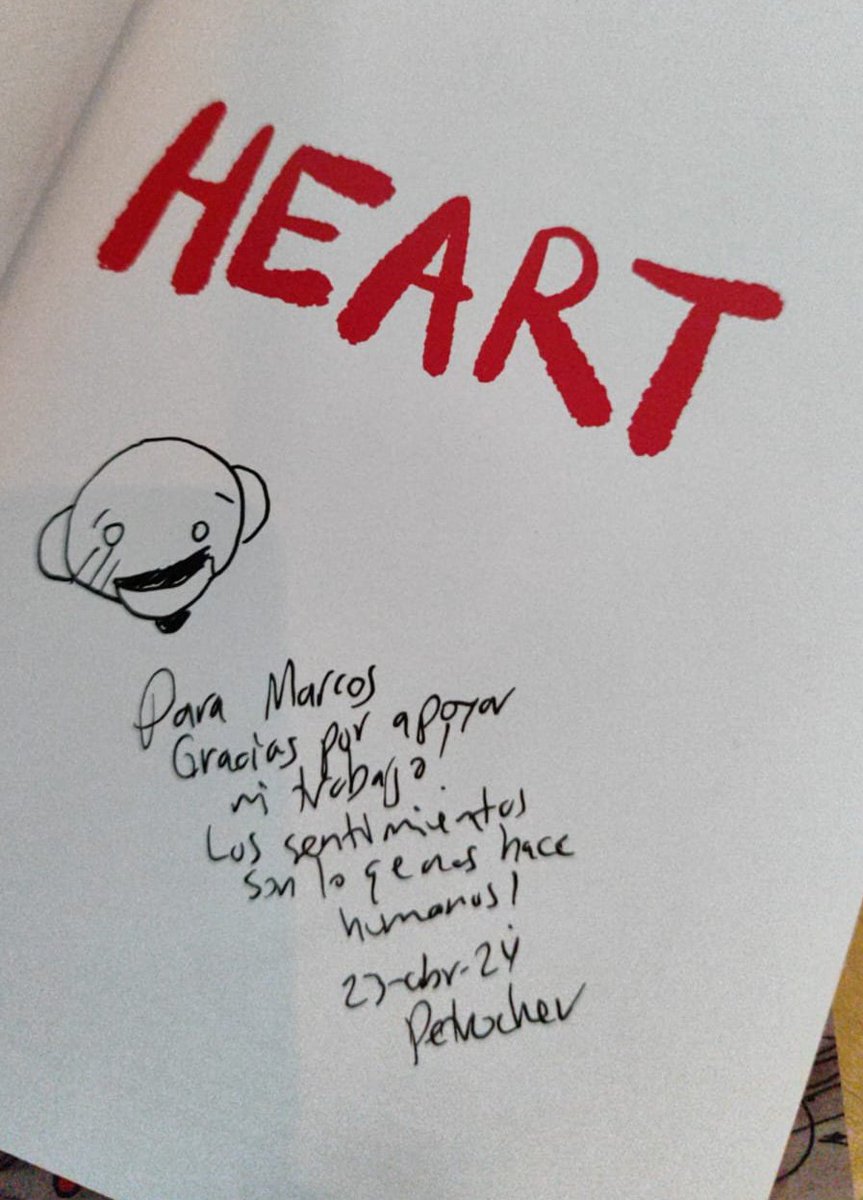 HEART
Para Marcos
Gracias por apoyar
mi trabajo!
Los sentimientos
son lo qe nos hace
humanos!
23-abr-24